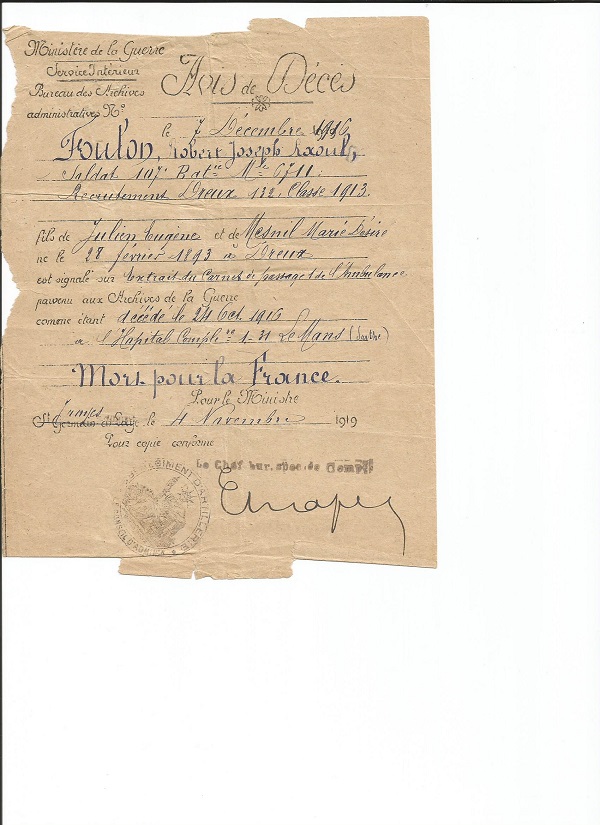 Ministère de la Guerre
Service Intérieur
Bureau des Archives
administratives No.
Avis de Décès
le 7 Décembre 1916
Foulon, Robert Joseph Raoul,
Soldat 107e Bat. Mle 6711.
Recrutement Dreux 132. Classe 1913.
fils de Julien Eugène et de Mesnil Marie Désire
né le 28 février 1893 à Dreux
est signalé sur Extrait du Carnet de passage de l'Ambulance
parvenu aux Archives de la Guerre
comme étant décédé le 24 Oct. 1916
à l'Hôpital Complre 1-31 Le Mans (Sarthe)
Mort pour la France.
Pour le Ministre
St Germain en Laye le 4 Novembre 1919
Pour copie conforme
Le Chef bur. spéc. de Compté
REGIMENT D'ARTILLERIE